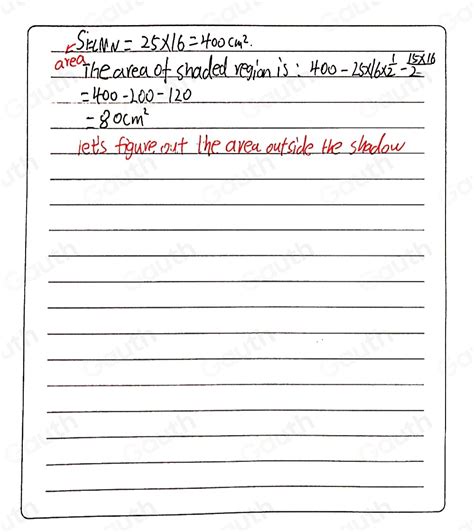 SKLMN = 25×16 = 400cm².
area The area of shaded region is : 400 - 25×16×1/2 - 15×16/2
= 400 - 200 - 120
= 80cm²
let's figure out the area outside the shadow
Gauth